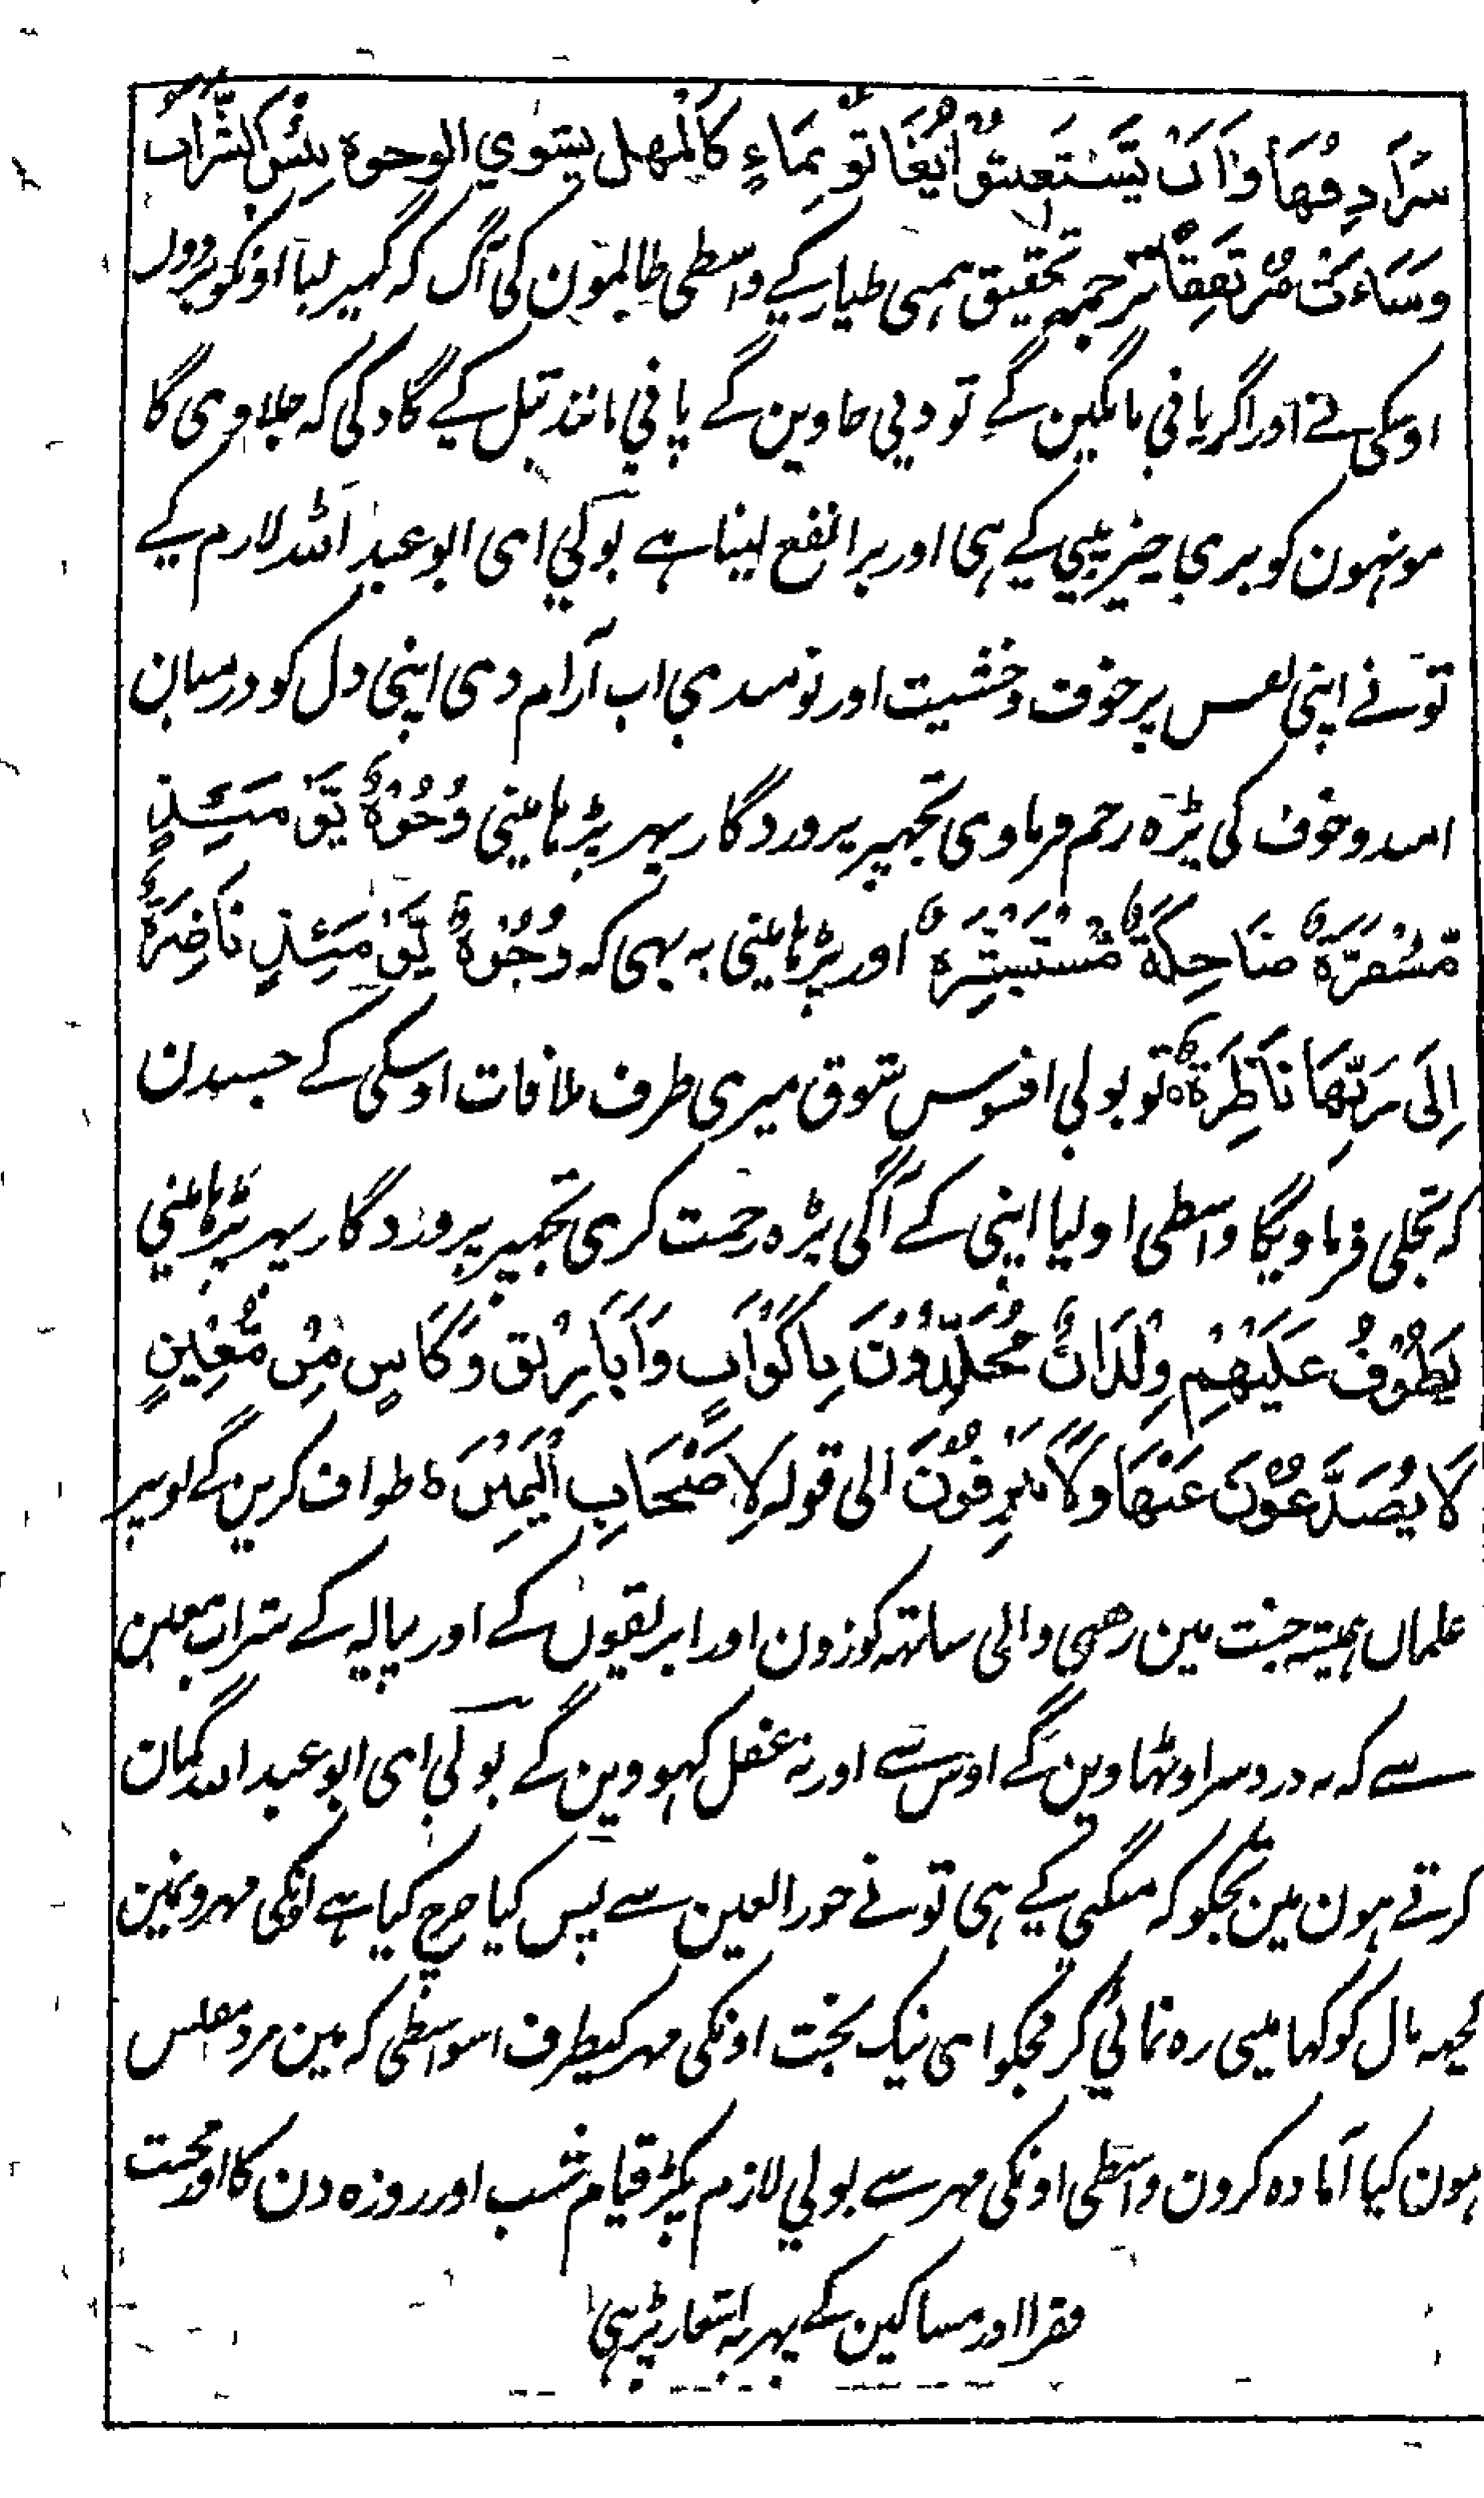 سُرَادِقُهَا وَاِنْ يَّسْتَغِيْثُوْا يُغَاثُوْا بِمَاءٍ كَالْمُهْلِ يشوي الوجوه بِئْسَ الشَّرَاب
وَسَاءَتْ مُرْتَفَقًا ترجمہ تحقیق ہمنی طیار کے واسطی ظالمون کی آگ کہ گہیر لیا اونکو پردون
اوسکی نے اور اگر پانی مانگین گے تو دیی جاوین گے پانی مانند تیل کے گاد کی کہ جلاوی گا
مونہون کو بری چیز پینی کے ہی اور برا نفع لینا ہے بولی ای ابو عبد اللہ لازم کے
تونے اپنی نفس پر خوف وخشیت اور نومیدی اب آرام دی اپنی دل کو درمیان
امید وخوف کی پڑہ رحم فرماوی تجہپر پروردگار پہر پڑہا مینی وُجُوْهٌ يَّوْمَئِذٍ
مُّسْفِرَةٌ ضَاحِكَةٌ مُّسْتَبْشِرَةٌ اور پڑہا مینی یہ بہی کہ وُجُوْهٌ يَّوْمَئِذٍ نَّاضِرَةٌ
اِلَى رَبِّهَا نَاظِرَةٌ تو بولی افسوس شوق میری طرف ملاقات اوسکی کے جسدن
کہ تجلی فرماویگا واسطی اولیا اپنی کے آگی پڑہ رحمت کری تجہپر پروردگار پہر پڑہا مینی
يَطُوْفُ عَلَيْهِمْ وِلْدَانٌ مُّخَلَّدُوْنَ بِاَكْوَابٍ وَّاَبَارِيْقَ وَكَاْسٍ مِّنْ مَّعِيْنٍ
لَا يُصَدَّعُوْنَ عَنْهَا وَلَا يُنْزِفُوْنَ الی قولہ لِاَصْحَابِ الْيَمِيْنِ ہ طواف کرین گے اوپر
غلمان ہمیشہ جنت مین رہنی والی ساتہہ کوزون اور ابریقون کے اور پیالہ کے شراب معین
سے کہ نہ درد سر اوٹھاوین گے اوس سے اور نہ عقل کہووین گے بولی ای ابو عبد اللہ گمان
کرتے ہون مین تجکو کہ منگنی کے ہی تونے حور العین سے پس کیا خرچ کیا ہے اونکی مہر ونمین
کچہہ مال کو کہا مینی رہ نمائی کر مجکو ای نیک بخت اونکی مہر کیطرف اسواسطی کہ مین مرد مفلس
ہون کیا آمادہ کرون واسطی اونکی مہر سے بولی لازم پکڑ قیام شب اور روزہ دن کا اور محبت
فقرا اور مساکین کے پہر یہ اشعار پڑہی